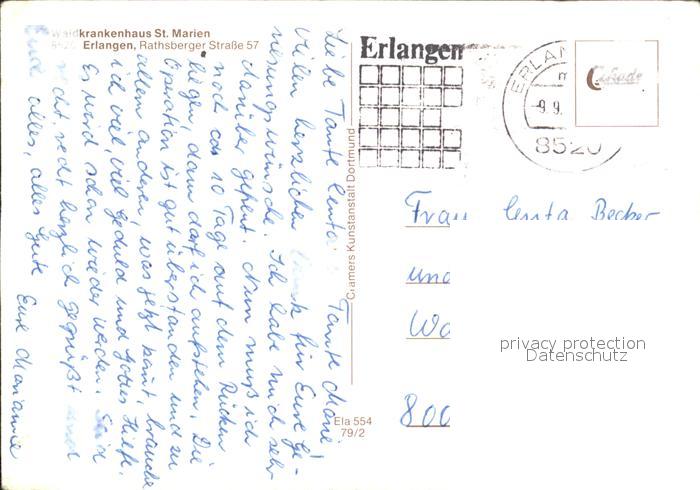 Waldkrankenhaus St. Marien
8520 Erlangen, Rathsberger Straße 57
Liebe Tante Centa, Tante Marie!
Vielen herzlichen Dank für Eure Ge-
nesungswünsche. Ich habe mich sehr
darüber gefreut. Nun muß ich
noch ca 10 Tage auf dem Rücken
liegen, dann darf ich aufstehen. Die
Operation ist gut überstanden und zu
allem anderen, was jetzt kommt, brauche
ich viel, viel Geduld und Gottes Hilfe.
Es wird schon wieder werden. Seid
recht, recht herzlich gegrüßt und
alles, alles Gute Eure Marianne
Cramers Kunstanstalt Dortmund
Ela 554
79/2
Erlangen
ERLAN
9.9.
8520
Frau Centa Becher
und
Wo
800
privacy protection
Datenschutz